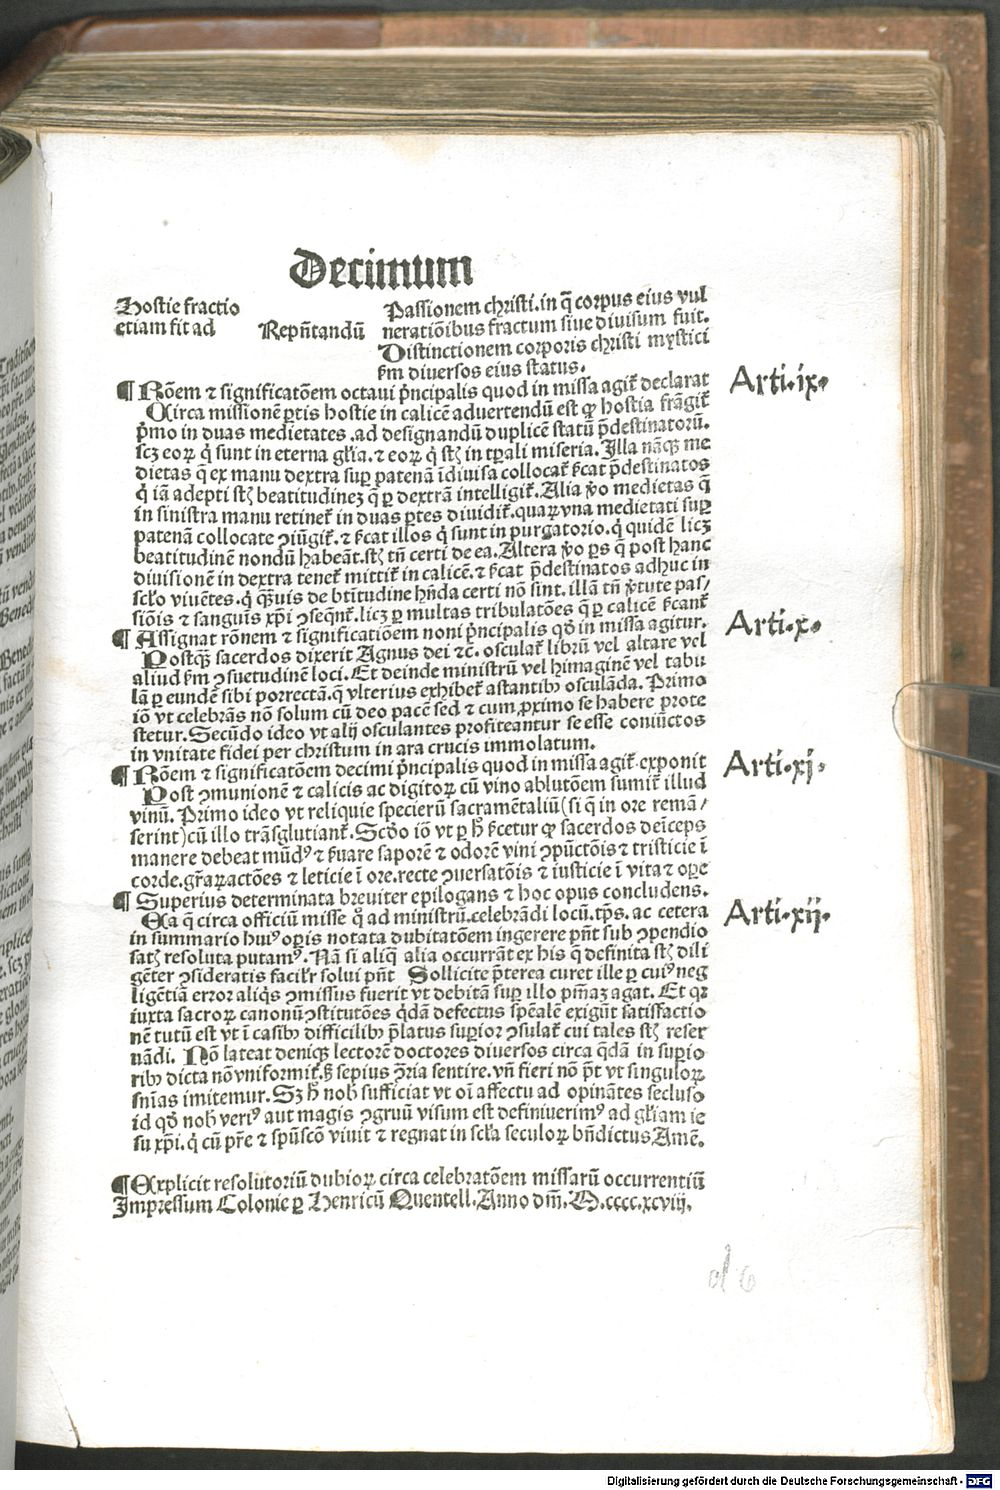 Decimum
Hostie fractio
etiam fit ad
Rep̄ntandū
Passionem christi. in q̄ corpus eius vul
neratiōibus fractum siue diuisum fuit.
Distinctionem corporis christi mystici
ẜm diuersos eius status.
¶ Rōem ⁊ significatōem octaui p̄ncipalis quod in missa agit᷑ declarat
Arti.ix.
Circa missionē ꝑtis hostie in calicē aduertendū est ꝙ hostia frāgit᷑
p̄mo in duas medietates .ad designandū duplicē statū p̄destinatoꝝ.
scꝫ eoꝝ q̇ sunt in eterna gl̄ia. ⁊ eoꝝ q̇ st̄ in tp̄ali miseria. Illa nāqꝫ me
dietas q̄ ex manu dextra suꝑ patenā īdiuisa collocat᷑ ẜcat p̄destinatos
q̇ iā adepti st̄ beatitudineꝫ q̄ ꝑ dextrā intelligit᷑. Alia v̓o medietas q̄
in sinistra manu retinet᷑ in duas ꝑtes diuidit᷑. quaꝝ vna medietati suꝑ
patenā collocate ↄiūgit᷑. ⁊ ẜcat illos q̇ sunt in purgatorio. q̇ quidē licꝫ
beatitudinē nondū habeāt. st̄ tn̄ certi de ea. Altera v̓o ꝑs q̄ post hanc
diuisionē in dextra tenet᷑ mittit᷑ in calicē. ⁊ ẜcat p̄destinatos adhuc in
sc̄lo viuētes. q̇ qꝫuis de btitudine hn̄da certi nō sint. illā tn̄ v̓tute pas/
siōis ⁊ sanguīs xp̄i ↄseqn̄t᷑. licꝫ ꝑ multas tribulatōes q̄ ꝑ calicē ẜcant᷑
¶ Assignat rōnem ⁊ significatiōem noni p̄ncipalis qd̄ in missa agitur.
Arti.x.
Postqꝫ sacerdos dixerit Agnus dei ⁊c̄. osculat᷑ librū vel altare vel
aliud ẜm ↄsuetudinē loci. Et deinde ministrū vel himaginē vel tabu
lā ꝑ eundē sibi porrectā. q̄ vlterius exhibet᷑ astantibꝫ osculāda. Primo
iō vt celebrās nō solum cū deo pacē sed ⁊ cum ꝓximo se habere prote
stetur. Secūdo ideo vt alij osculantes profiteantur se esse coniūctos
in vnitate fidei per christum in ara crucis immolatum.
¶ Rōem ⁊ significatōem decimi p̄ncipalis quod in missa agit᷑ exponit
Arti.xj.
Post ↄmunionē ⁊ calicis ac digitoꝝ cū vino ablutōem sumit᷑ illud
vinū. Primo ideo vt reliquie specierū sacramētaliū (si q̄ in ore remā/
serint) cū illo trāsglutiant᷑. Scd̄o iō vt ꝑ h̄ ẜcetur ꝙ sacerdos deīceps
manere debeat mūdꝰ ⁊ ẜuare saporē ⁊ odorē vini ↄpūctōis ⁊ tristicie ī
corde. gr̄aꝝactōes ⁊ leticie ī ore. recte ↄuersatōis ⁊ iusticie ī vita ⁊ oꝑe
¶ Superius determinata breuiter epilogans ⁊ hoc opus concludens.
Arti.xij.
Ea q̄ circa officiū misse q̊ ad ministrū. celebrādi locū. tp̄s. ac cetera
in summario huiꝰ oꝑis notata dubitatōem ingerere pn̄t sub ↄpendio
sat̄ resoluta putamꝰ. Nā si aliq̄ alia occurrāt ex his q̄ definita st̄ dili
gēter ↄsideratis facilr̄ solui pn̄t Sollicite p̄terea curet ille ꝑ cuiꝰ neg
ligētiā error aliq̇s ↄmissus fuerit vt debitā suꝑ illo pn̄iaꝫ agat. Et qꝛ
iuxta sacroꝝ canonū ↄstitutōes q̄dā defectus spēalē exigūt satisfactio
nē tutū est vt ī casibꝫ difficilibꝫ p̄latus suꝑior ↄsulat᷑ cui tales st̄ reser
uādi. Nō lateat deniqꝫ lectorē doctores diuersos circa q̄dā in suꝑio
ribꝫ dicta nō vniformit᷑. sꝫ sepius ↄria sentire. vn̄ fieri nō pōt vt singuloꝝ
sn̄ias imitemur. Sꝫ h̄ nob̄ sufficiat vt oī affectu ad opinātes secluso
id qd̄ nob̄ veriꝰ aut magis ↄgruū visum est definiuerimꝰ ad gl̄iam ie
su xp̄i. q̇ cū pr̄e ⁊ sp̄uscō viuit ⁊ regnat in sc̄la seculoꝝ bn̄dictus Amē.
¶ Explicit resolutoriū dubioꝝ circa celebratōem missarū occurrentiū
Impressum Colonie ꝑ Henricū Quentell. Anno dn̄i. M.cccc.xcviij.
d 6
Digitalisierung gefördert durch die Deutsche Forschungsgemeinschaft - DFG